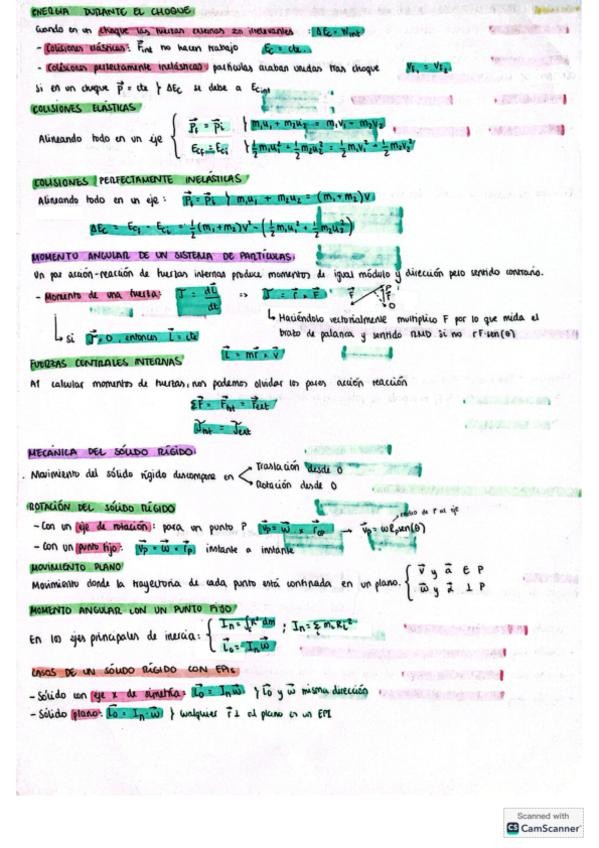 ENERGÍA DURANTE EL CHOQUE
Cuando en un choque las fuerzas externas son irrelevantes : ΔEc = Wint
- Colisiones elásticas: Fint no hacen trabajo Ec = cte.
- Colisiones perfectamente inelásticas: partículas acaban unidas tras choque Vf1 = Vf2
Si en un choque p⃗ = cte } ΔEc se debe a Ecint
COLISIONES ELÁSTICAS
Alineando todo en un eje { p⃗i = p⃗i } m1u1 + m2u2 = m1v1 = m2v2
Ecf = Eci } ½m1u1² + ½m2u2² = ½m1v1² - ½m2v2²
COLISIONES PERFECTAMENTE INELÁSTICAS
Alineando todo en un eje : p⃗i = p⃗i } m1u1 + m2u2 = (m1+m2)v
ΔEc = Ecf - Eci = ½(m1+m2)v² - (½m1u1² + ½m2u2²)
MOMENTO ANGULAR DE UN SISTEMA DE PARTÍCULAS:
Un par acción-reacción de fuerzas internas produce momentos de igual módulo y dirección pero sentido contrario.
- Momento de una fuerza: = dL⃗/dt => = r⃗ x F⃗
Haciéndolo vectorialmente multiplico F por lo que mida el
brazo de palanca y sentido RMD si no rF·sen(θ)
si = 0, entonces L⃗ = cte
L⃗ = mr⃗ x v⃗
FUERZAS CENTRALES INTERNAS
Al calcular momentos de fuerzas, nos podemos olvidar los pares acción reacción
ΣF⃗ = F⃗int = F⃗ext
int = ext
MECÁNICA DEL SÓLIDO RÍGIDO
. Movimiento del sólido rígido descompone en < Traslación desde O
Rotación desde O
ROTACIÓN DEL SÓLIDO RÍGIDO
radio de P al eje
- Con un eje de rotación: para un punto P v⃗p = ω⃗ x r⃗op → v⃗p = ωRpsen(θ)
- Con un punto fijo: v⃗p = ω⃗ x r⃗p instante a instante
MOVIMIENTO PLANO
Movimiento donde la trayectoria de cada punto está confinada en un plano. { v⃗ y a⃗ ∈ P
ω⃗ y α⃗ ⊥ P
MOMENTO ANGULAR CON UN PUNTO FIJO
En los ejes principales de inercia: { In = ∫R² dm ; In = Σ mi Ri²
L⃗o = Inω⃗
CASOS DE UN SÓLIDO RÍGIDO CON EPIs
- Sólido con eje x de simetría: L⃗o = Inω⃗ } L⃗o y ω⃗ misma dirección
- Sólido plano: L⃗o = In·ω⃗ } cualquier r⃗ ⊥ al plano es un EPI
Scanned with
CS CamScanner